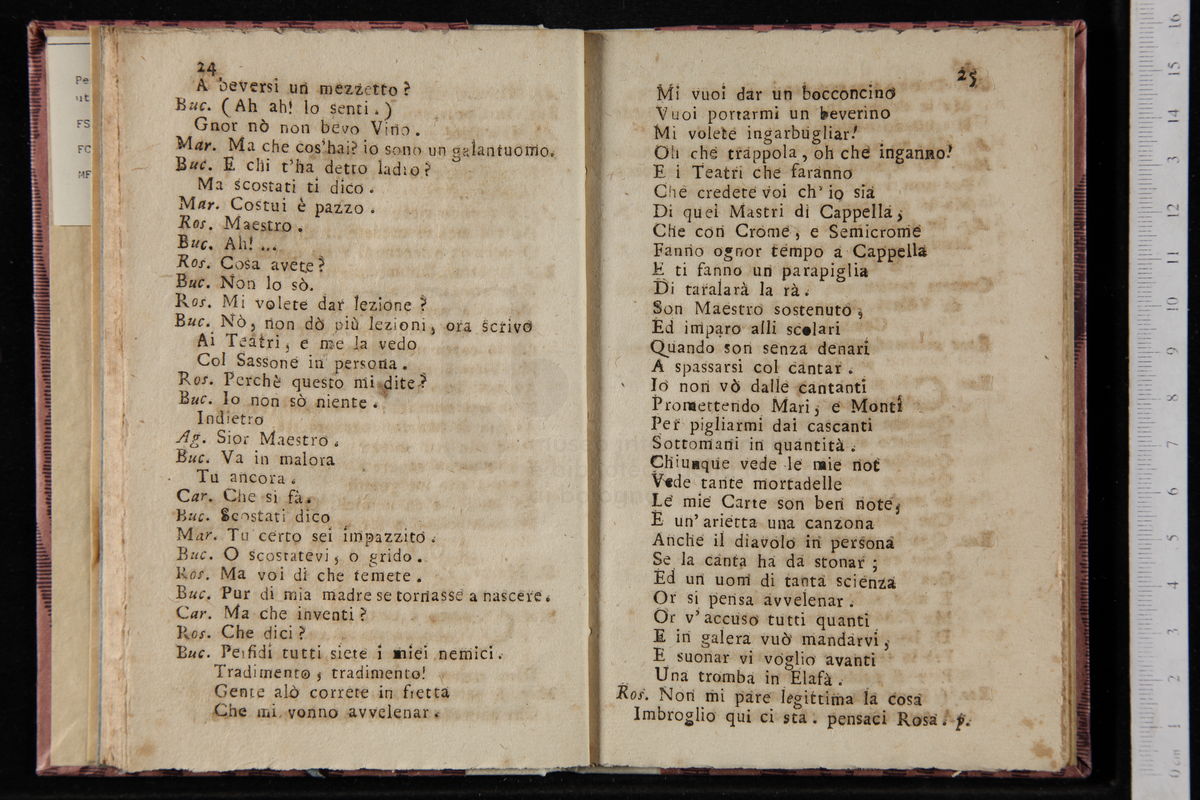 24
A beversi un mezzetto?
Buc. (Ah ah! lo senti.)
Gnor nò non bevo Vino.
Mar. Ma che cos'hai? io sono un galantuomo.
Buc. E chi t'ha detto ladro?
Ma scostati ti dico.
Mar. Costui è pazzo.
Ros. Maestro.
Buc. Ah! ...
Ros. Cosa avete?
Buc. Non lo sò.
Ros. Mi volete dar lezione?
Buc. Nò, non dò più lezioni, ora scrivo
Ai Teatri, e me la vedo
Col Sassone in persona.
Ros. Perchè questo mi dite?
Buc. Io non sò niente.
Indietro
Ag. Sior Maestro.
Buc. Va in malora
Tu ancora.
Car. Che si fà.
Buc. Scostati dico
Mar. Tu certo sei impazzito.
Buc. O scostatevi, o grido.
Ros. Ma voi di che temete.
Buc. Pur di mia madre se tornasse a nascere.
Car. Ma che inventi?
Ros. Che dici?
Buc. Perfidi tutti siete i miei nemici.
Tradimento, tradimento!
Gente alò correte in fretta
Che mi vonno avvelenar.
25
Mi vuoi dar un bocconcino
Vuoi portarmi un beverino
Mi volete ingarbugliar!
Oh che trappola, oh che inganno!
E i Teatri che faranno
Che credete voi ch' io sia
Di quei Mastri di Cappella,
Che con Crome, e Semicrome
Fanno ognor tempo a Cappella
E ti fanno un parapiglia
Di taralarà la rà.
Son Maestro sostenuto,
Ed imparo alli scolari
Quando son senza denari
A spassarsi col cantar.
Io non vò dalle cantanti
Promettendo Mari, e Monti
Per pigliarmi dai cascanti
Sottomani in quantità.
Chiunque vede le mie not
Vede tante mortadelle
Le mie Carte son ben note,
E un' arietta una canzona
Anche il diavolo in persona
Se la canta ha da stonar;
Ed un uom di tanta scienza
Or si pensa avvelenar.
Or v' accuso tutti quanti
E in galera vuò mandarvi,
E suonar vi voglio avanti
Una tromba in Elafà.
Ros. Non mi pare legittima la cosa
Imbroglio qui ci sta. pensaci Rosa. p.
Pe
ut
FS
FC
MF